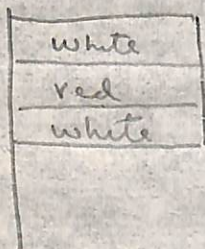 white
red
white